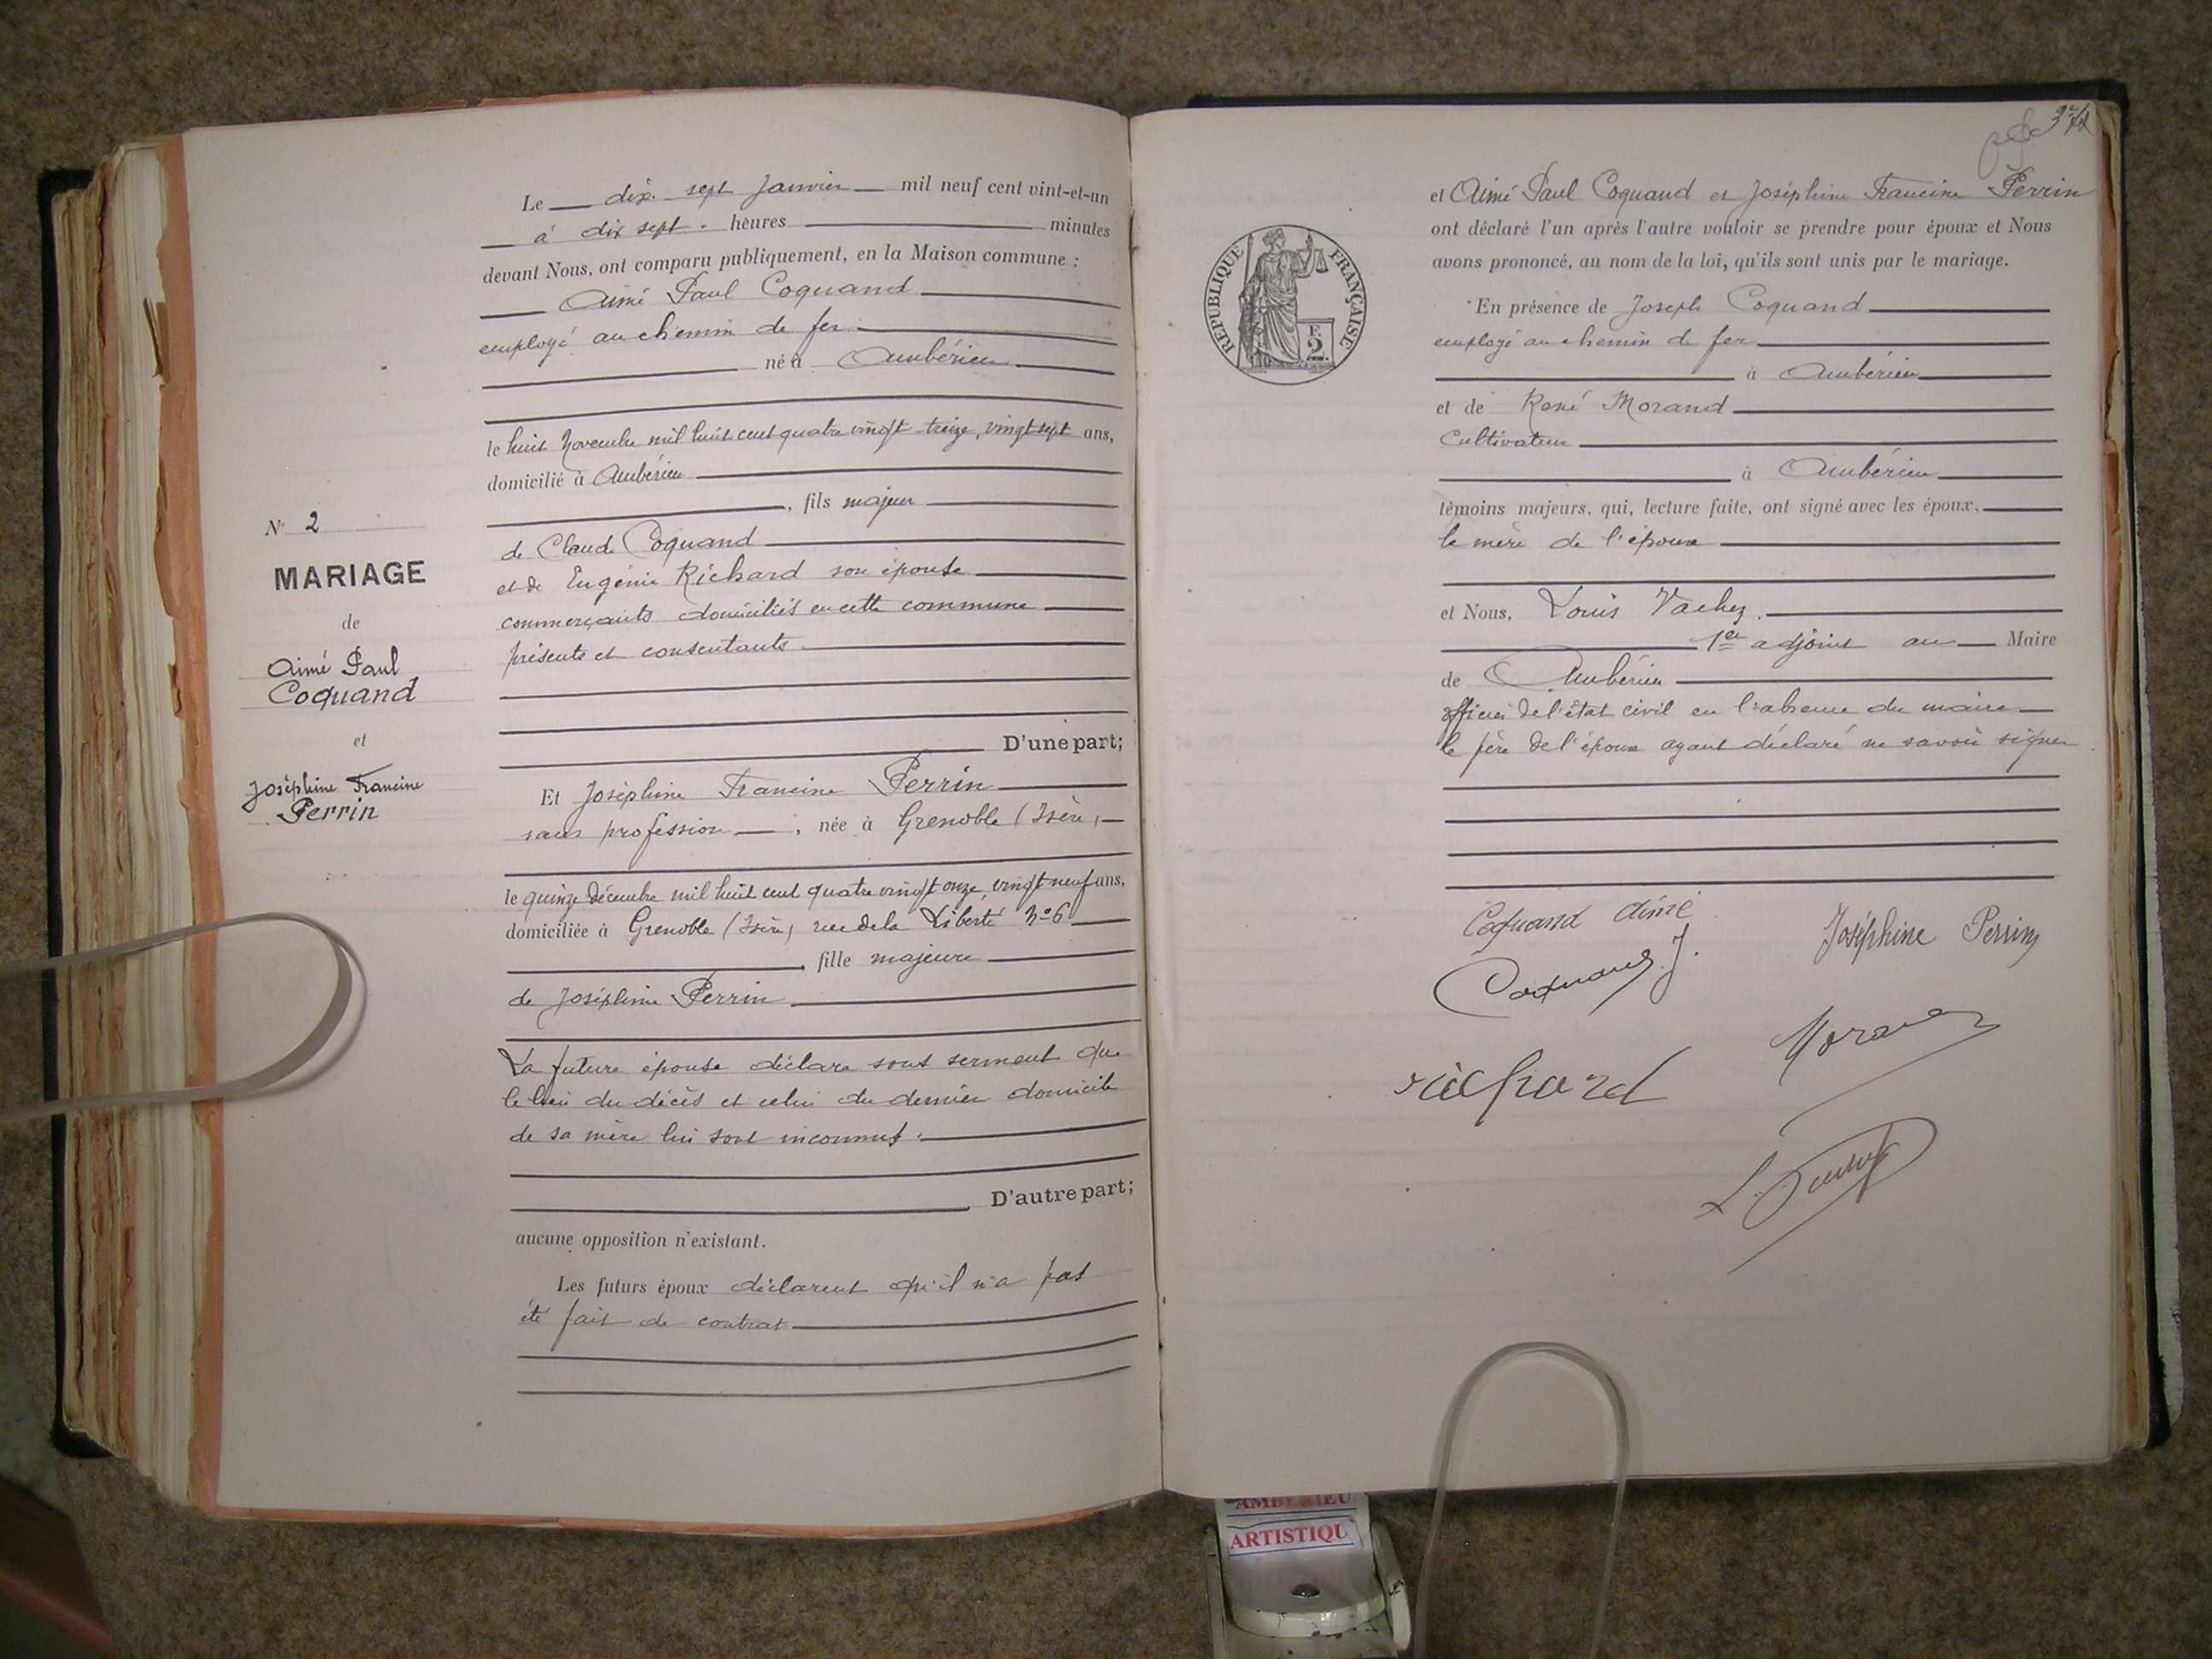 Le dix sept Janvier mil neuf cent vint-et-un
à dix sept heures minutes
devant Nous, ont comparu publiquement, en la Maison commune :
Aimé Paul Coquand
employé au chemin de fer
né à Ambérieu
le huit Novembre mil huit cent quatre vingt treize, vingt sept ans,
domicilié à Ambérieu
, fils majeur
de Claude Coquand
et de Eugénie Richard son épouse
commerçants domiciliés en cette commune
présents et consentants.
D'une part;
N° 2
MARIAGE
de
Aimé Paul
Coquand
et
Joséphine Francine
Perrin
Et Joséphine Francine Perrin
sans profession, née à Grenoble (Isère)
le quinze décembre mil huit cent quatre vingt onze, vingt neuf ans,
domiciliée à Grenoble (Isère) rue de la Liberté N° 6
, fille majeure
de Joséphine Perrin
La future épouse déclare sous serment que
le lieu du décès et celui du dernier domicile
de sa mère lui sont inconnus.
D'autre part;
aucune opposition n'existant.
Les futurs époux déclarent qu'il n'a pas
été fait de contrat
et Aimé Paul Coquand et Joséphine Francine Perrin
ont déclaré l'un après l'autre vouloir se prendre pour époux et Nous
avons prononcé, au nom de la loi, qu'ils sont unis par le mariage.
REPUBLIQUE FRANÇAISE
2
En présence de Joseph Coquand
employé au chemin de fer
à Ambérieu
et de René Morand
Cultivateur
à Ambérieu
témoins majeurs, qui, lecture faite, ont signé avec les époux,
la mère de l'époux
et Nous, Louis Vachez,
1er adjoint au Maire
de Ambérieu
officier de l'état civil en l'absence du maire
le père de l'époux ayant déclaré ne savoir signer.
Coquand Aimé
Joséphine Perrin
Coquand J.
Morand
richard
AMBERIEU
ARTISTIQU